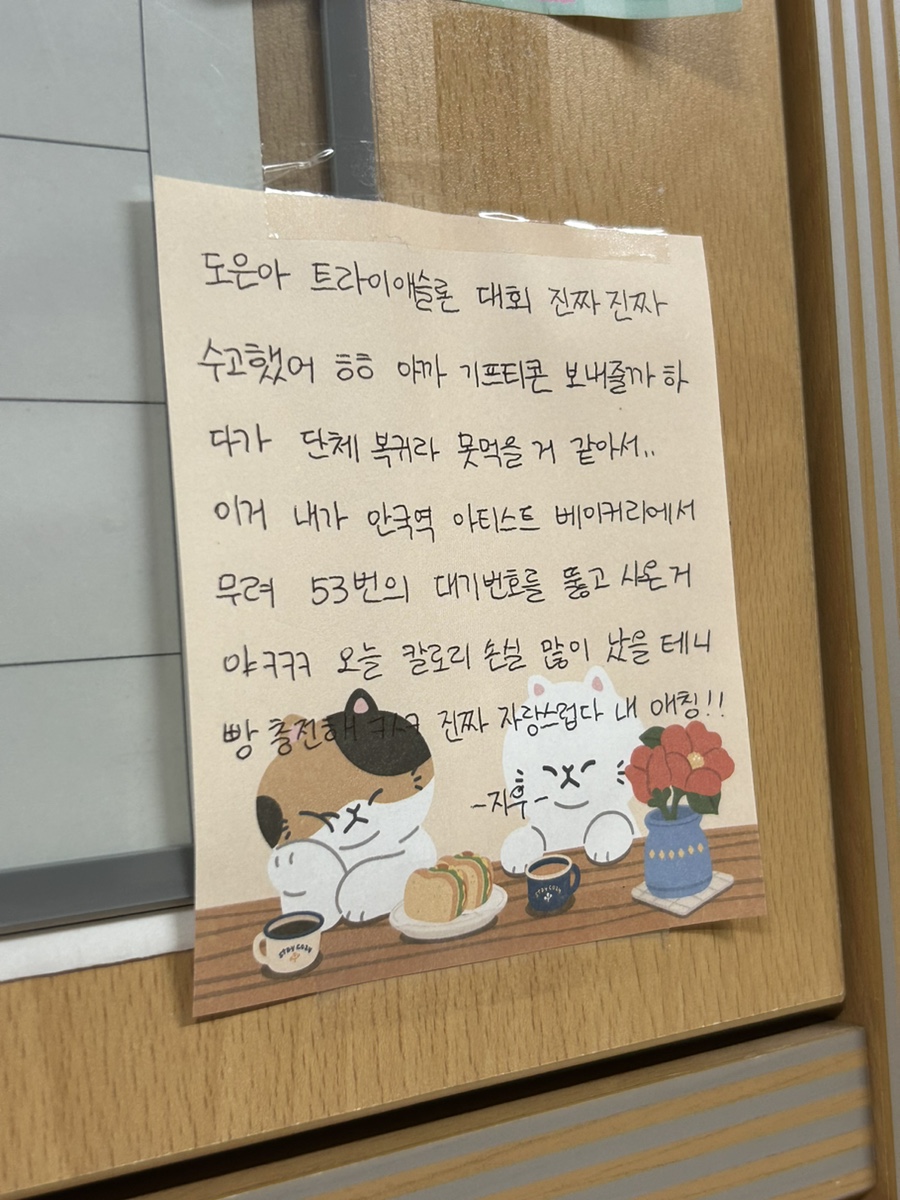 도은아 트라이애슬론 대회 진짜진짜
수고했어 ㅎㅎ 아까 기프티콘 보내줄까 하
다가 단체 복귀라 못먹을 거 같아서..
이거 내가 안국역 아티스트 베이커리에서
무려 53번의 대기번호를 뚫고 사온거
야ㅋㅋㅋ 오늘 칼로리 손실 많이 났을 테니
빵 충전해 ㅋㅅㅋ 진짜 자랑스럽다 내 애칭!!
-지우-
STAY COZY
STAY COZY